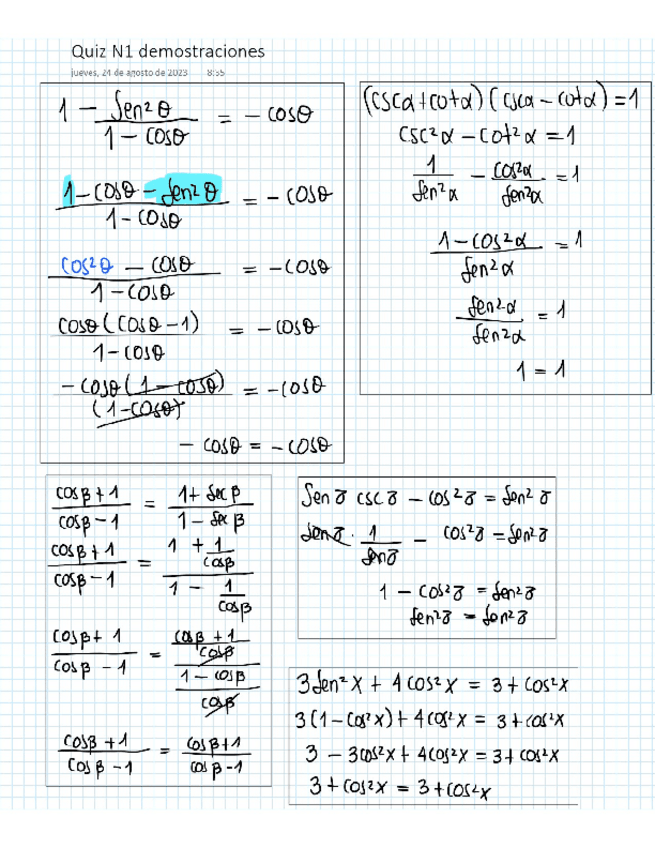 Quiz N1 demostraciones
jueves, 24 de agosto de 2023 8:35
1 - Sen²θ / (1 - cosθ) = - cosθ
(1 - cosθ - sen²θ) / (1 - cosθ) = - cosθ
(cos²θ - cosθ) / (1 - cosθ) = - cosθ
cosθ (cosθ - 1) / (1 - cosθ) = - cosθ
- cosθ (1 - cosθ) / (1 - cosθ) = - cosθ
- cosθ = - cosθ
(cscα + cotα) (cscα - cotα) = 1
csc²α - cot²α = 1
1 / sen²α - cos²α / sen²α = 1
(1 - cos²α) / sen²α = 1
sen²α / sen²α = 1
1 = 1
(cosβ + 1) / (cosβ - 1) = (1 + secβ) / (1 - secβ)
(cosβ + 1) / (cosβ - 1) = (1 + 1/cosβ) / (1 - 1/cosβ)
(cosβ + 1) / (cosβ - 1) = ((cosβ + 1) / cosβ) / ((1 - cosβ) / cosβ)
(cosβ + 1) / (cosβ - 1) = (cosβ + 1) / (cosβ - 1)
Sen ૪ csc ૪ - cos²૪ = sen²૪
sen ૪ · 1 / sen ૪ - cos²૪ = sen²૪
1 - cos²૪ = sen²૪
sen²૪ = sen²૪
3 sen²x + 4 cos²x = 3 + cos²x
3 (1 - cos²x) + 4 cos²x = 3 + cos²x
3 - 3cos²x + 4cos²x = 3 + cos²x
3 + cos²x = 3 + cos²x